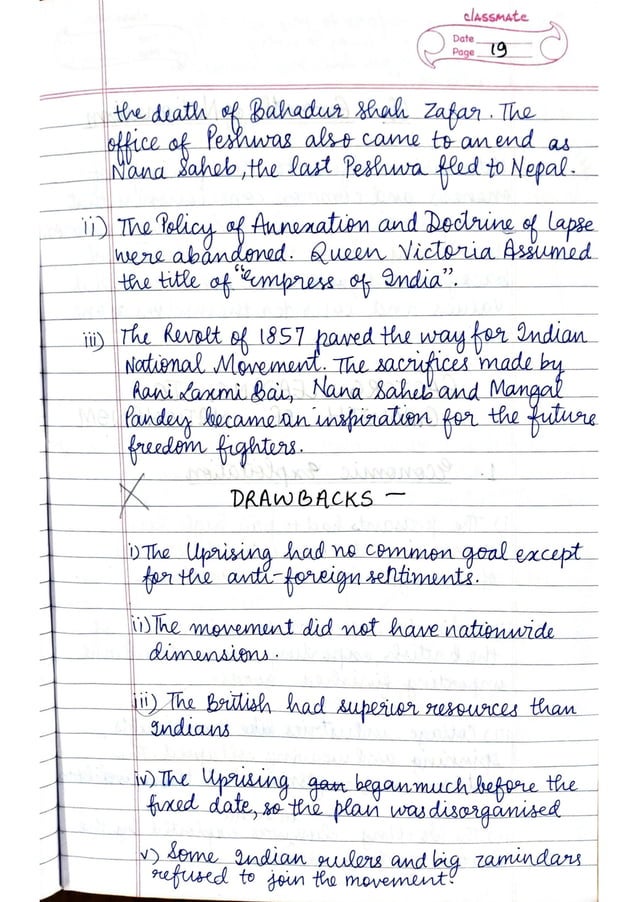 classmate
Date
Page 19
the death of Bahadur Shah Zafar. The
office of Peshwas also came to an end as
Nana Saheb, the last Peshwa fled to Nepal.
ii) The Policy of Annexation and Doctrine of Lapse
were abandoned. Queen Victoria Assumed
the title of "Empress of India".
iii) The Revolt of 1857 paved the way for Indian
National Movement. The sacrifices made by
Rani Laxmi Bai, Nana Saheb and Mangal
Pandey became an inspiration for the future
freedom fighters.
DRAWBACKS —
i) The Uprising had no common goal except
for the anti-foreign sentiments.
ii) The movement did not have nationwide
dimensions.
iii) The British had superior resources than
Indians
iv) The Uprising gan began much before the
fixed date, so the plan was disorganised
v) Some Indian rulers and big zamindars
refused to join the movement.